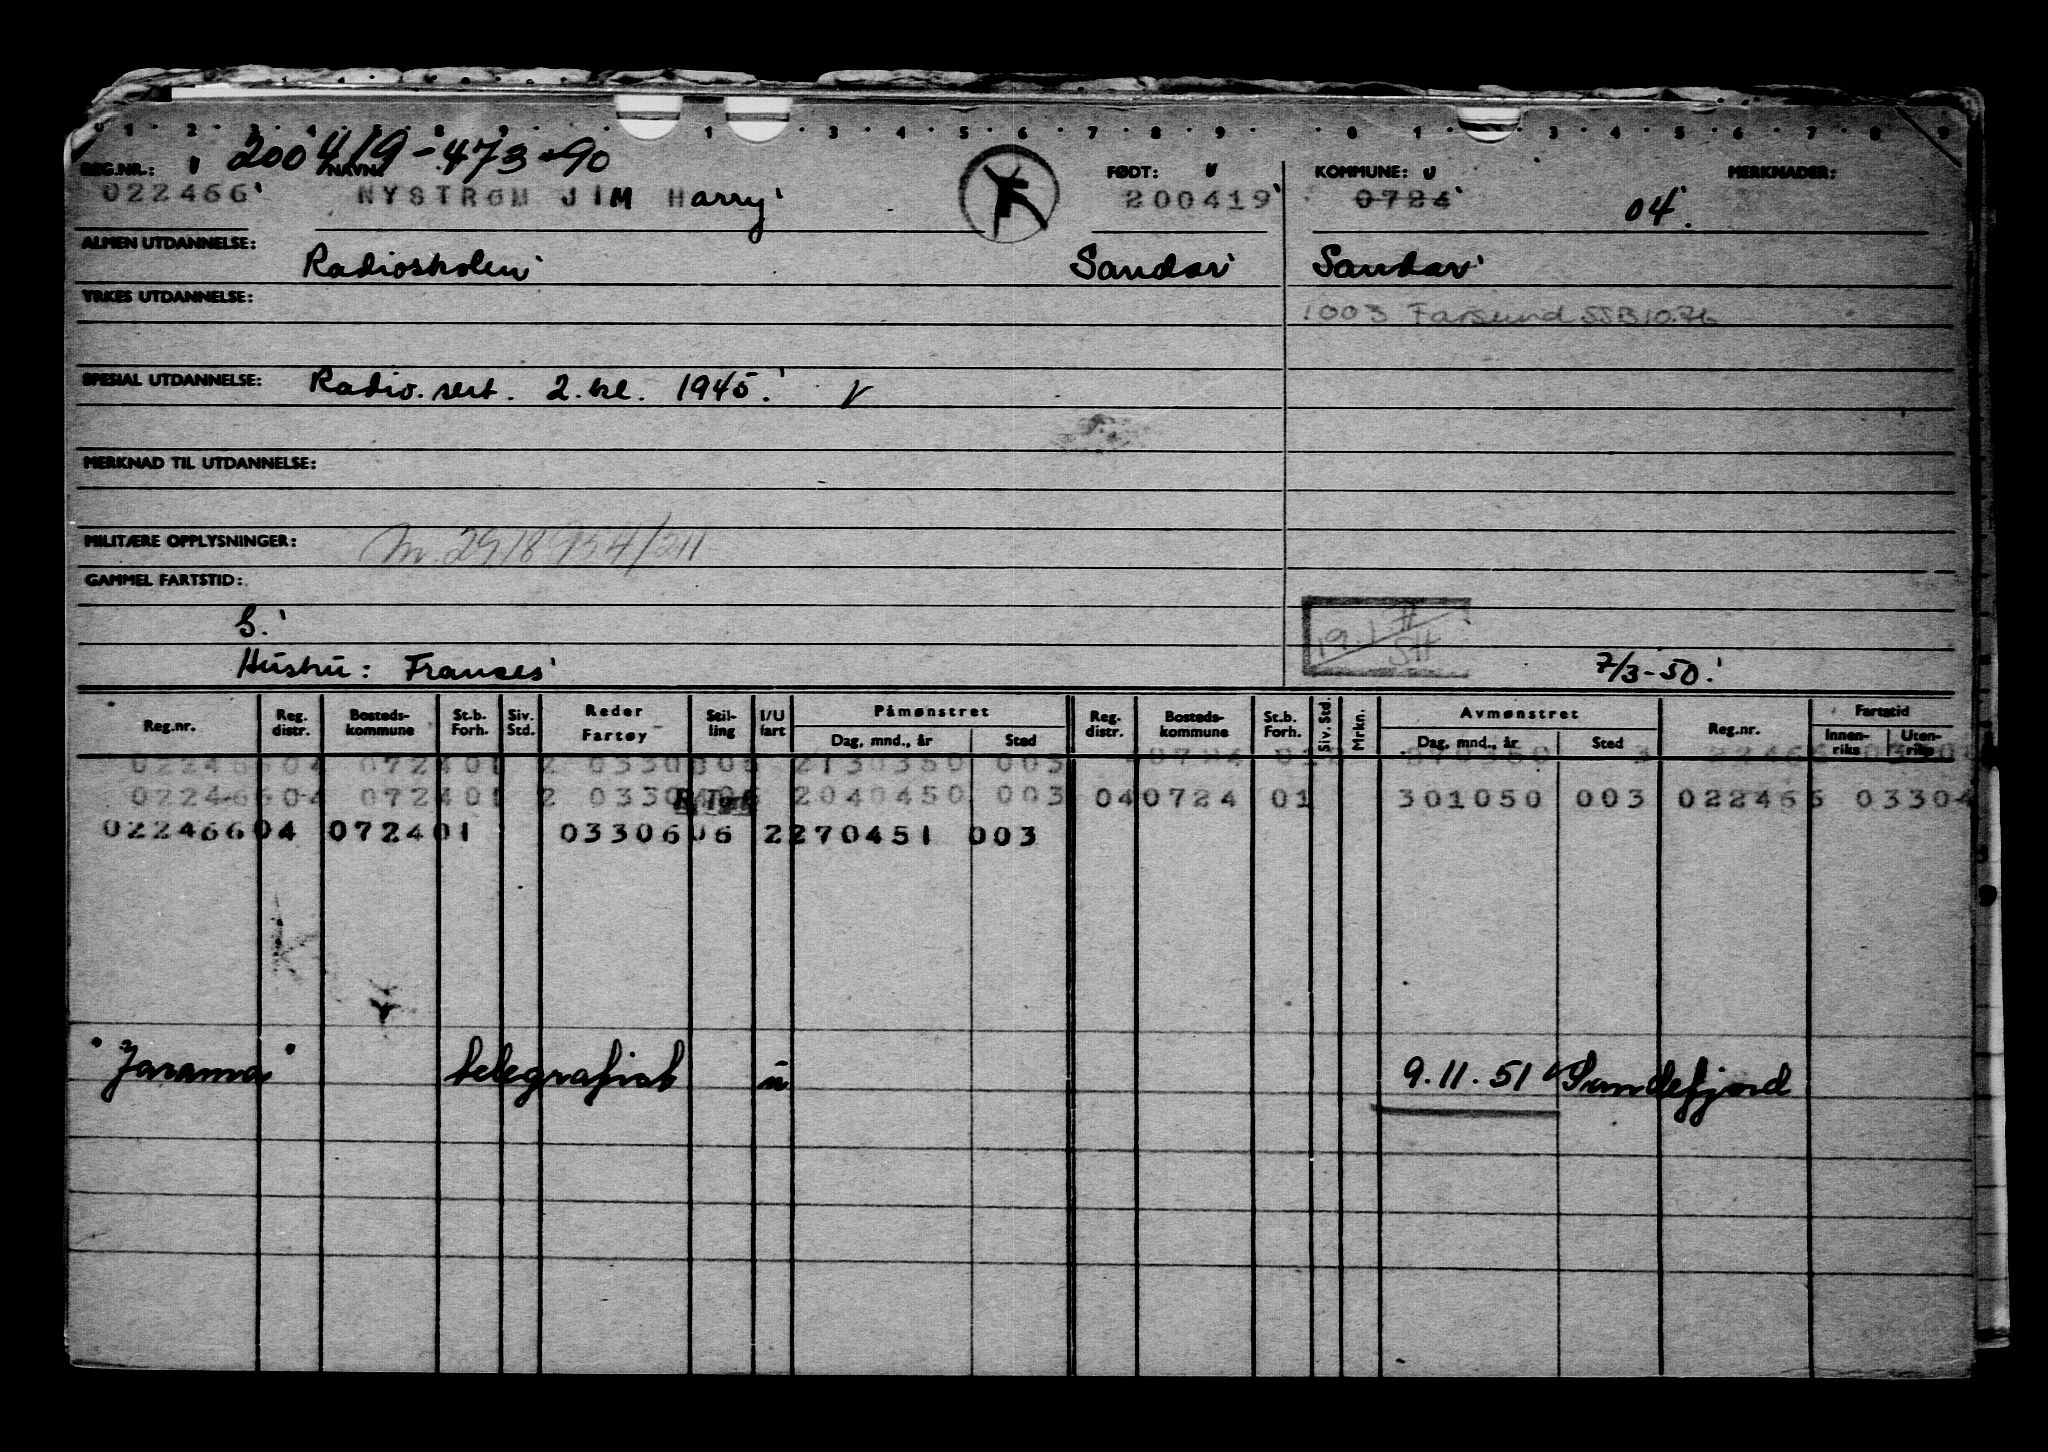 200419-473-90
REG.NR.: NAVN: FØDT: KOMMUNE: MERKNADER:
022466 NYSTRØM JIM Harry 200419 0724 04.
ALMEN UTDANNELSE: Radioskolen Sandar Sandar
YRKES UTDANNELSE: 1003 Farsund SSB 10.76
SPESIAL UTDANNELSE: Radio. sert. 2. kl. 1945. V
MERKNAD TIL UTDANNELSE:
MILITÆRE OPPLYSNINGER:
GAMMEL FARTSTID:
G.
Hustru: Frances 7/3-50.
Reg.nr. Reg. distr. Bosteds-kommune St.b. Forh. Siv. Std. Reder Fartøy Stil-ling I/U fart Påmønstret Dag, mnd., år Sted Reg. distr. Bosteds-kommune St.b. Forh. Siv. Std. Mrkn. Avmønstret Dag, mnd., år Sted Reg.nr. Fartstid Innen-riks Uten-riks
022466 04 0724 01 2 0330 2 130350 003
022466 04 0724 01 2 0330 2 040450 003 04 0724 01 301050 003 022466 03304
022466 04 0724 01 03306 06 2 270451 003
"Jarama" telegrafist u 9.11.51 Sandefjord